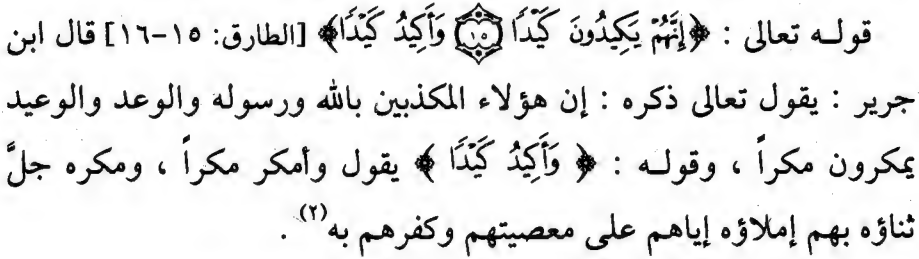 قولـه تعالى : ﴿إِنَّهُمْ يَكِيدُونَ كَيْدًا ﴿١٥﴾ وَأَكِيدُ كَيْدًا﴾ [الطارق: ١٥-١٦] قال ابن
جرير : يقول تعالى ذكره : إن هؤلاء المكذبين بالله ورسوله والوعد والوعيد
يمكرون مكراً ، وقولـه : ﴿ وَأَكِيدُ كَيْدًا ﴾ يقول وأمكر مكراً ، ومكره جلَّ
ثناؤه بهم إملاؤه إياهم على معصيتهم وكفرهم به(٢) .